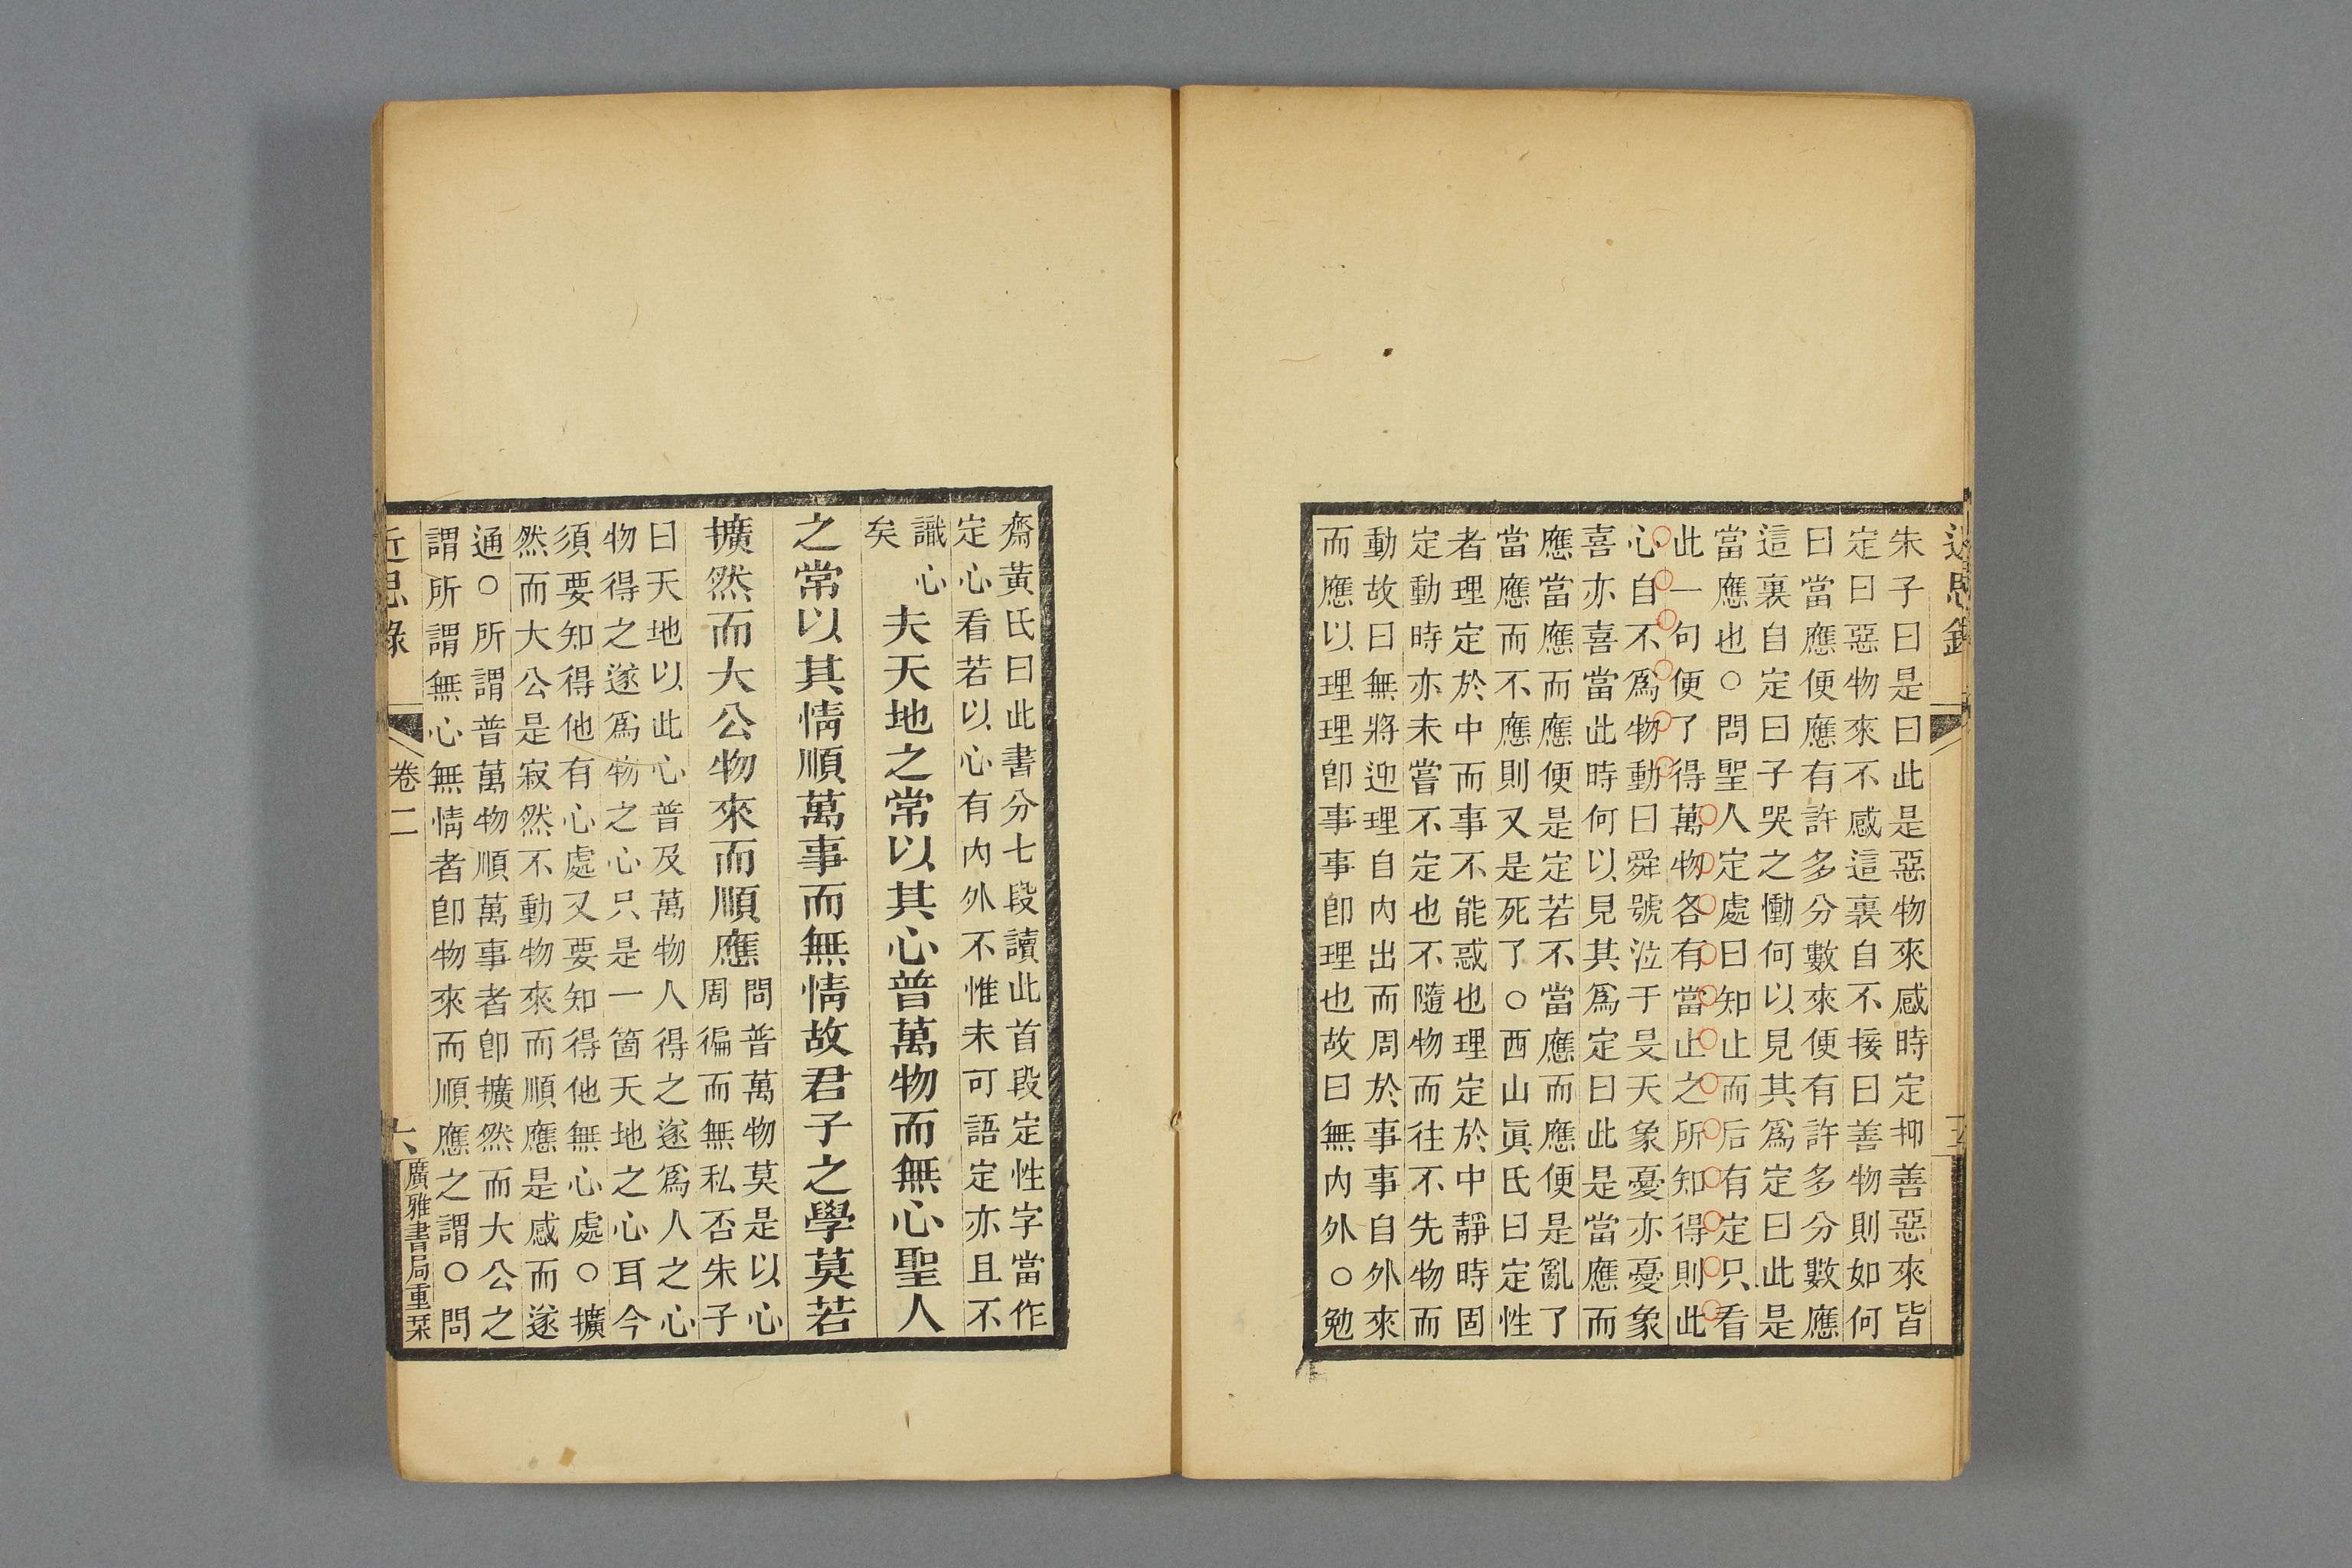 近思錄
朱子曰是曰此是惡物來感時定抑善惡來皆
定曰惡物來不感這裏自不接曰善物則如何
曰當應便應有許多分數來便有許多分數應
這裏自定曰子哭之慟何以見其爲定曰此是
當應也○問聖人定處曰知止而后有定只看
此一句便了得萬物各有當止之所知得則此
心自不爲物動曰舜號泣于旻天象憂亦憂象
喜亦喜當此時何以見其爲定曰此是當應而
應當應而應便是定若不當應而應便是亂了
當應而不應則又是死了○西山眞氏曰定性
者理定於中而事不能惑也理定於中靜時固
定動時亦未嘗不定也不隨物而往不先物而
動故曰無將迎理自內出而周於事事自外來
而應以理理卽事事卽理也故曰無內外○勉
齋黃氏曰此書分七段讀此首段定性字當作
定心看若以心有內外不惟未可語定亦且不
識心
矣
夫天地之常以其心普萬物而無心聖人
之常以其情順萬事而無情故君子之學莫若
擴然而大公物來而順應
問普萬物莫是以心
周徧而無私否朱子
曰天地以此心普及萬物人得之遂爲人之心
物得之遂爲物之心只是一箇天地之心耳今
須要知得他有心處又要知得他無心處○擴
然而大公是寂然不動物來而順應是感而遂
通○所謂普萬物順萬事者卽擴然而大公之
謂所謂無心無情者卽物來而順應之謂○問
近思錄
卷二
六
廣雅書局重栞